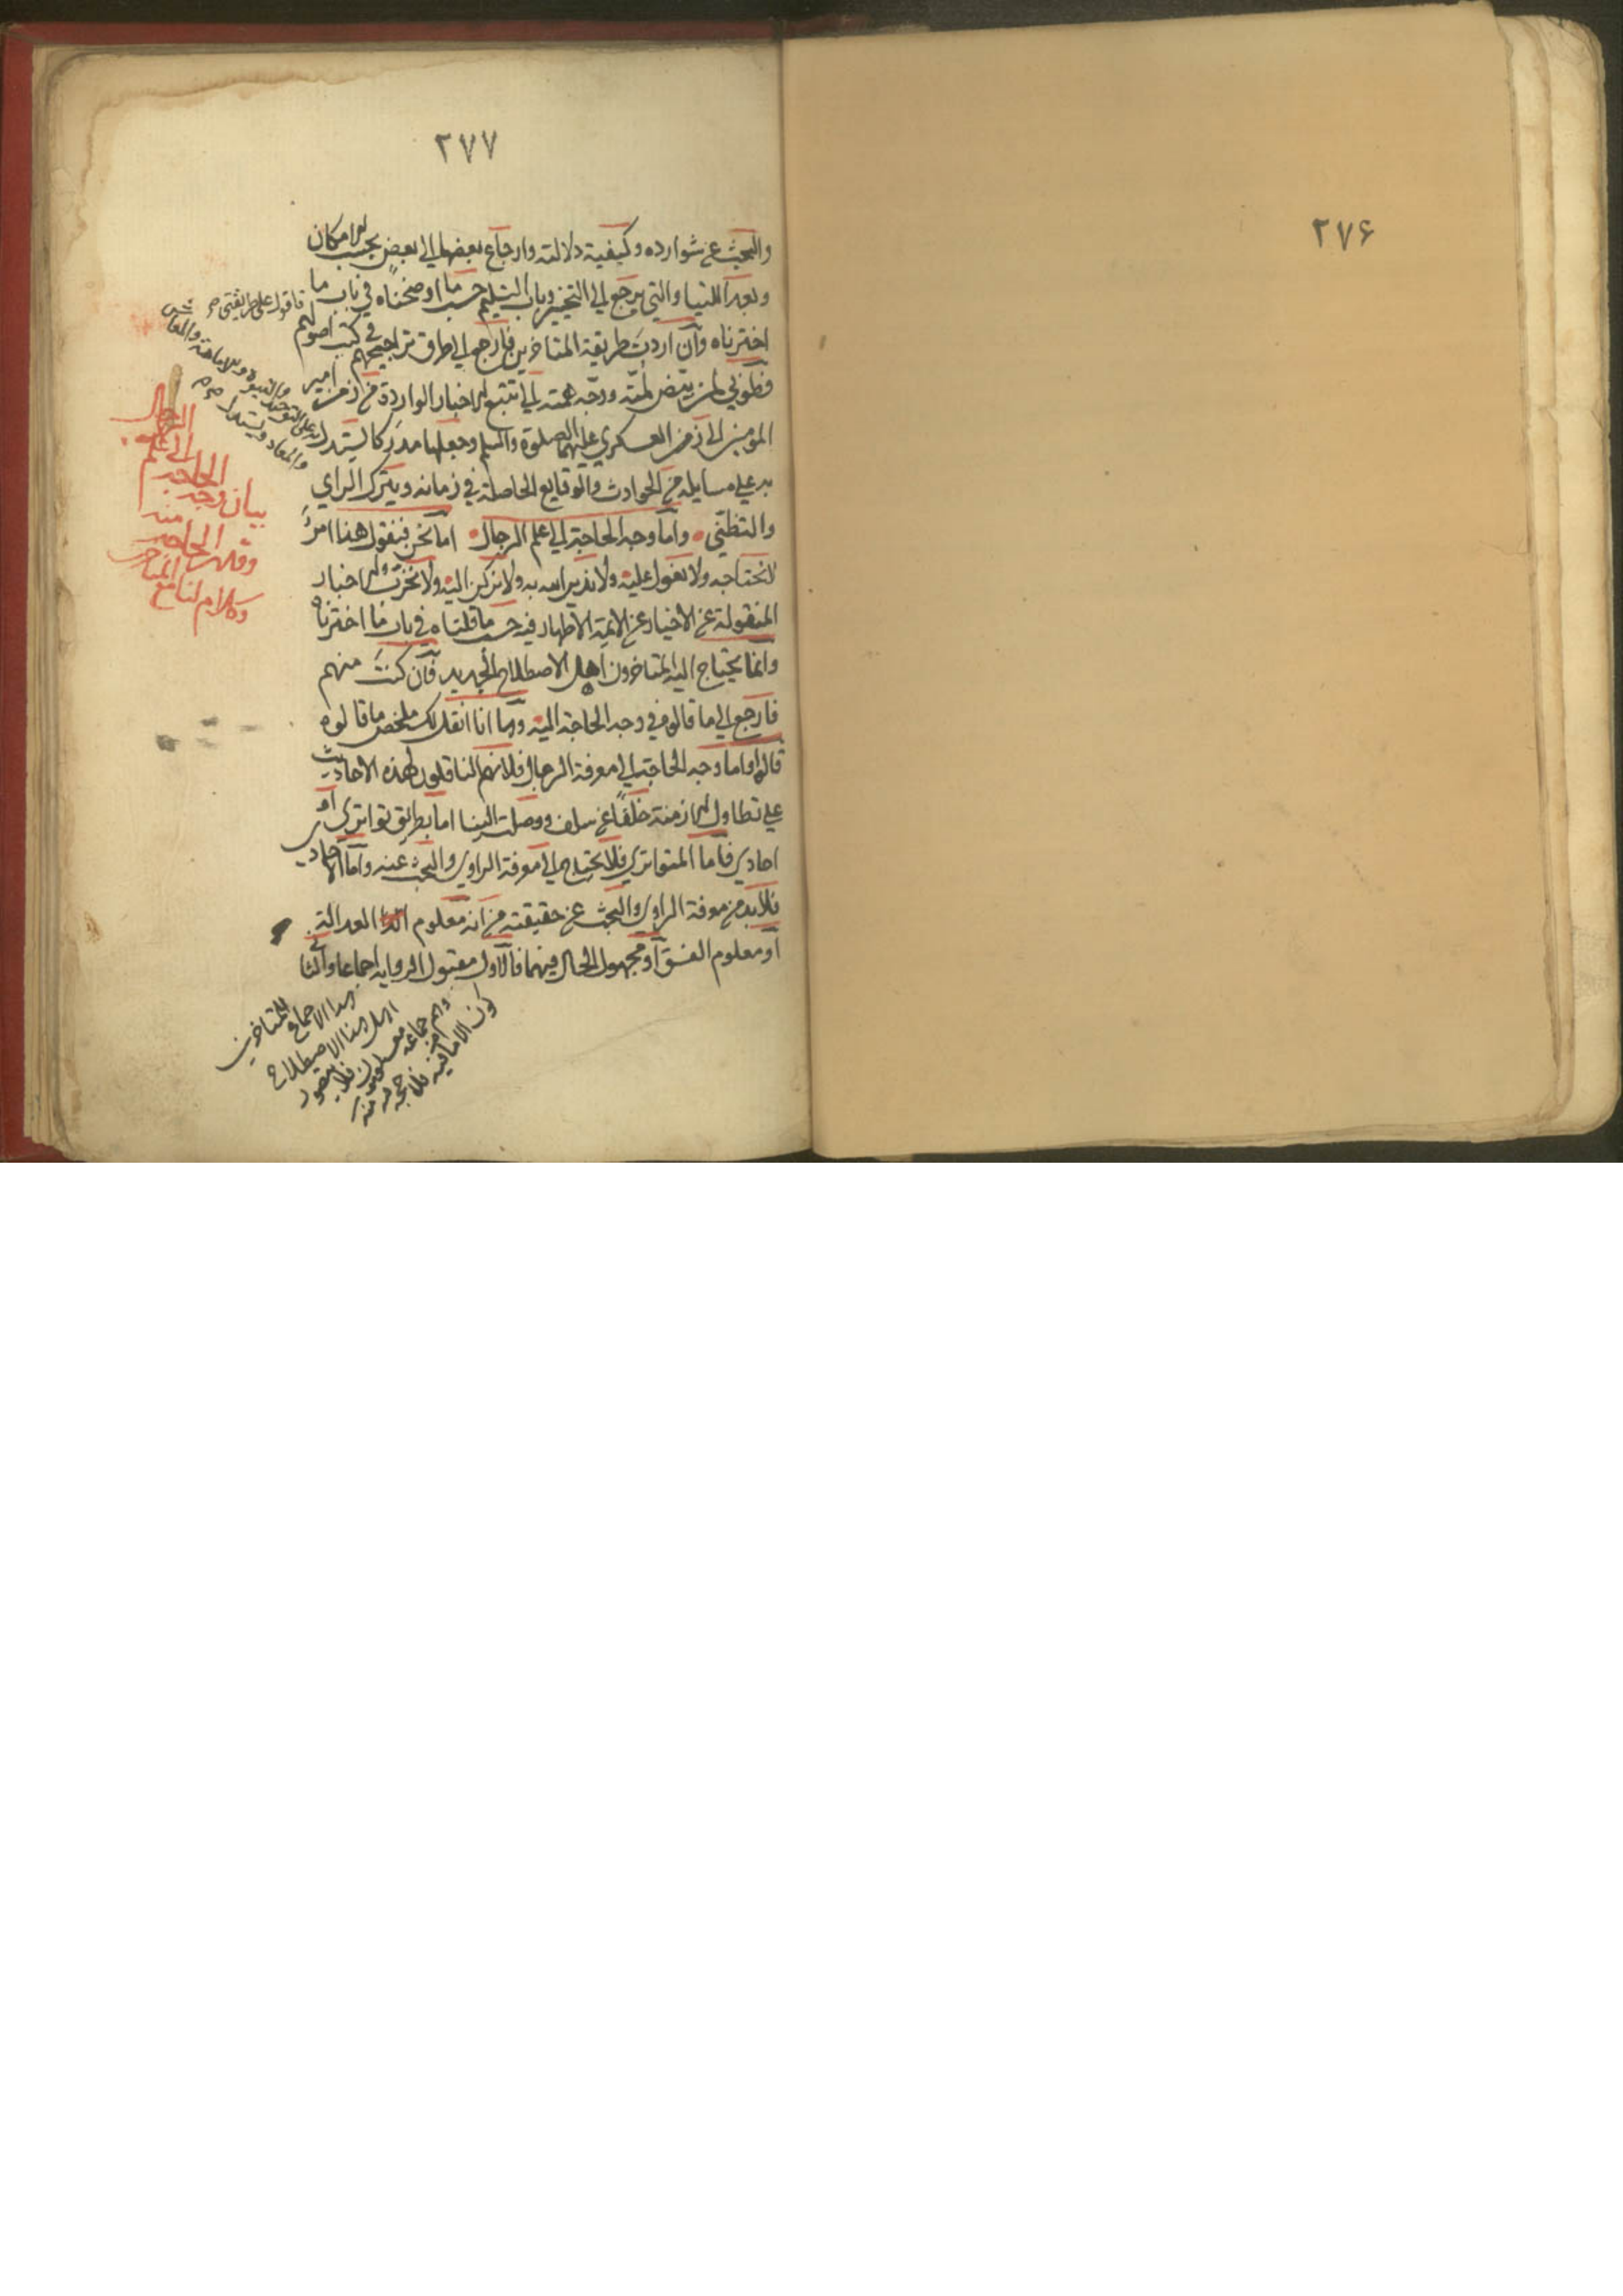 ٢٧٦
٢٧٧
والبحث عن شوارده وكيفية دلالته وارجاع بعضها الى بعض بحسب الامكان
وبعد اللتيا والتي يرجع الى التخيير وباب التسليم حسب ما اوضحناه في باب ما
اخترناه وان اردت طريقة المتاخرين فارجع الى طرق تراجيحهم في كتب اصولهم
فطوبى لمن همته الى تتبع الاخبار الواردة من زمن امير
المؤمنين الى زمن العسكري عليهما الصلوة والسلم وجعلها مدركا ليستدل
به على مسايله من الحوادث والوقايع الحاصلة في زمانه ويترك الراي
والتظني واما وجه الحاجة الى علم الرجال اما نحن فنقول هذا امر
لانحتاجه ولا نعول عليه ولا ندين الله به ولا نركن اليه ولا الاخبار
المنقولة عن الاخيار عن الايمة الاطهار فيه حسب ما قلناه في باب ما اخترناه
وانما يحتاج اليه المتاخرون اهل الاصطلاح الجديد فان كنت منهم
فارجع الى ما قالوه في وجه الحاجة اليه وها انا انقل لك ملخص ما قالوه
قالوا واما وجه الحاجة الى معرفة الرجال فلانهم الناقلون لهذه الاحاديث
على تطاول الازمنة خلفا عن سلف ووصلت الينا اما بطريق تواتري او
احادي فاما المتواتري فلا يحتاج الى معرفة الراوي والبحث عنه واما الاحادي
فلابد من معرفة الراوي والبحث عن حقيقته من انه معلوم العدالة
او معلوم الفسق او مجهول الحال فيهما فالاول مقبول الرواية اجماعا والثاني
فاقول على طريقتي
على التوحيد والنبوة والامامة والمعاش
والمعاد ويستدل
بيان وجه
الحاجة
الى علم
الرجال
وقلة الحاجة منه
وكلام لنا مع المتاخر
هذا الاجماع للمتاخرين
اهل هذا الاصطلاح
وهم جماعة معلومون فلا يتصور
كون الامام فيه فلا حجة فيه منه